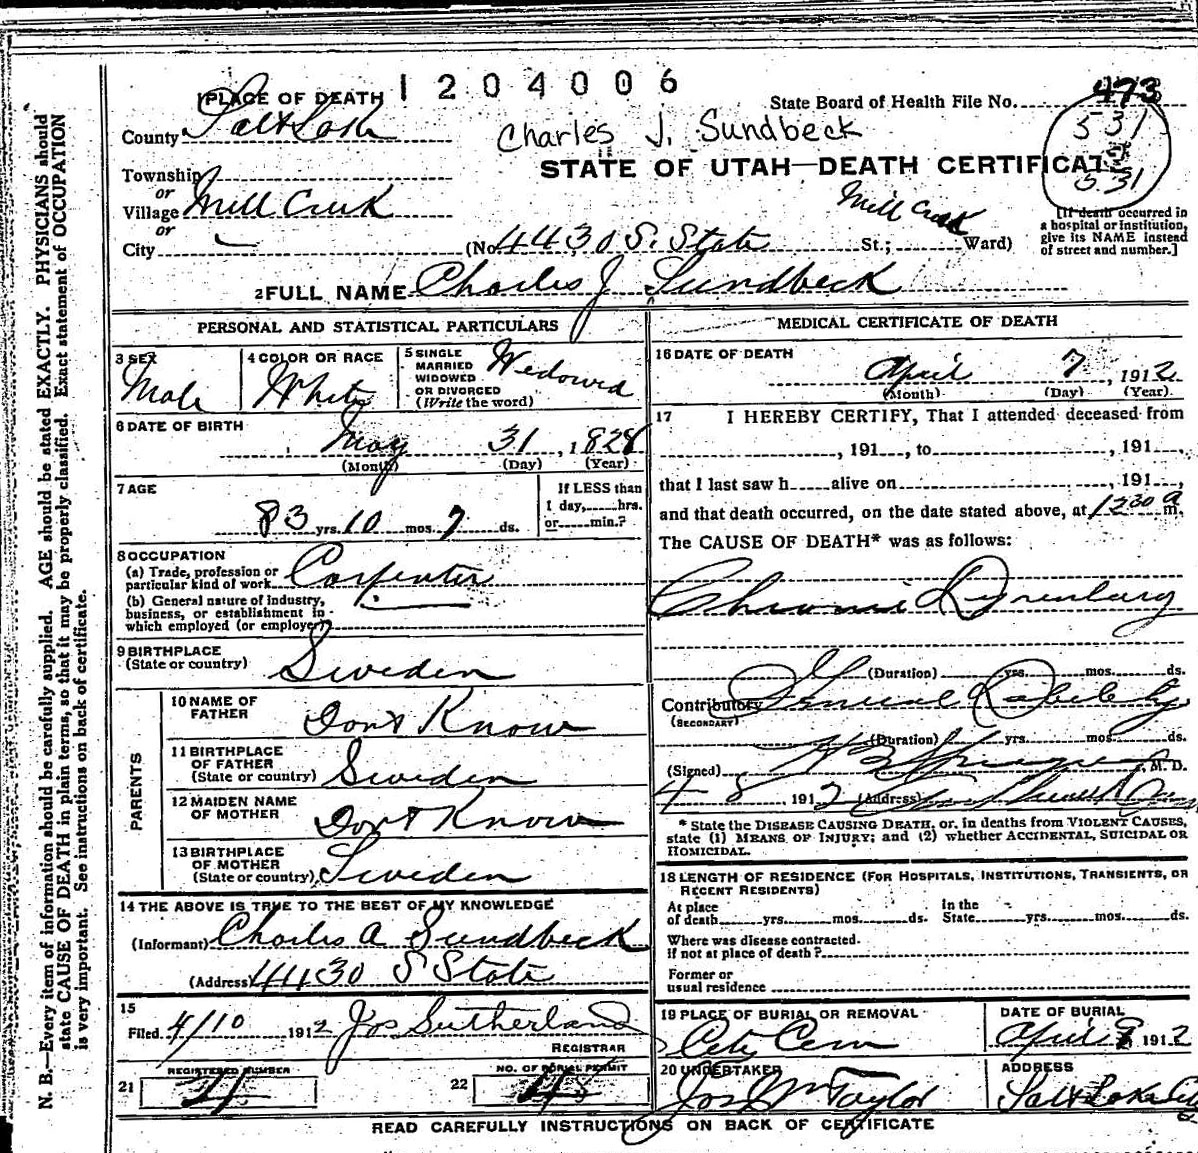 1204006
1 PLACE OF DEATH
State Board of Health File No. 473
County Salt Lake
Charles J. Sundbeck
531
531
STATE OF UTAH—DEATH CERTIFICATE
Township
or
Village Mill Creek
or
City
(No. 4430 S. State St.; Mill Creek Ward)
[If death occurred in
a hospital or institution,
give its NAME instead
of street and number.]
2 FULL NAME Charles J Sundbeck
PERSONAL AND STATISTICAL PARTICULARS
3 SEX
Male
4 COLOR OR RACE
White
5 SINGLE
MARRIED
WIDOWED
OR DIVORCED
(Write the word)
Widowed
6 DATE OF BIRTH
May 31, 1828
(Month) (Day) (Year)
7 AGE
83 yrs. 10 mos. 7 ds.
If LESS than
1 day, hrs.
or min.?
8 OCCUPATION
(a) Trade, profession or
particular kind of work Carpenter
(b) General nature of industry,
business, or establishment in
which employed (or employer)
9 BIRTHPLACE
(State or country) Sweden
PARENTS
10 NAME OF
FATHER Dont Know
11 BIRTHPLACE
OF FATHER
(State or country) Sweden
12 MAIDEN NAME
OF MOTHER Dont Know
13 BIRTHPLACE
OF MOTHER
(State or country) Sweden
14 THE ABOVE IS TRUE TO THE BEST OF MY KNOWLEDGE
(Informant) Charles A Sundbeck
(Address) 4430 S State
15
Filed 4/10 1912 Jos Sutherland
REGISTRAR
REGISTERED NUMBER
21
NO. OF BURIAL PERMIT
22
MEDICAL CERTIFICATE OF DEATH
16 DATE OF DEATH
April 7, 1912
(Month) (Day) (Year)
17 I HEREBY CERTIFY, That I attended deceased from
, 191 , to , 191
that I last saw h alive on , 191 ,
and that death occurred, on the date stated above, at 1230 a m.
The CAUSE OF DEATH* was as follows:
Chronic
(Duration) yrs. mos. ds.
Contributory
(SECONDARY)
(Duration) yrs. mos. ds.
(Signed) M. D.
4 8, 1912 (Address)
* State the DISEASE CAUSING DEATH, or, in deaths from VIOLENT CAUSES,
state (1) MEANS OF INJURY; and (2) whether ACCIDENTAL, SUICIDAL OR
HOMICIDAL.
18 LENGTH OF RESIDENCE (FOR HOSPITALS, INSTITUTIONS, TRANSIENTS, OR
RECENT RESIDENTS)
At place
of death yrs. mos. ds.
In the
State yrs. mos. ds.
Where was disease contracted.
if not at place of death?
Former or
usual residence
19 PLACE OF BURIAL OR REMOVAL
City Cem
DATE OF BURIAL
April 1912
20 UNDERTAKER
Jos Wm Taylor
ADDRESS
Salt Lake City
READ CAREFULLY INSTRUCTIONS ON BACK OF CERTIFICATE
N. B.—Every item of information should be carefully supplied. AGE should be stated EXACTLY. PHYSICIANS should
state CAUSE OF DEATH in plain terms, so that it may be properly classified. Exact statement of OCCUPATION
is very important. See instructions on back of certificate.